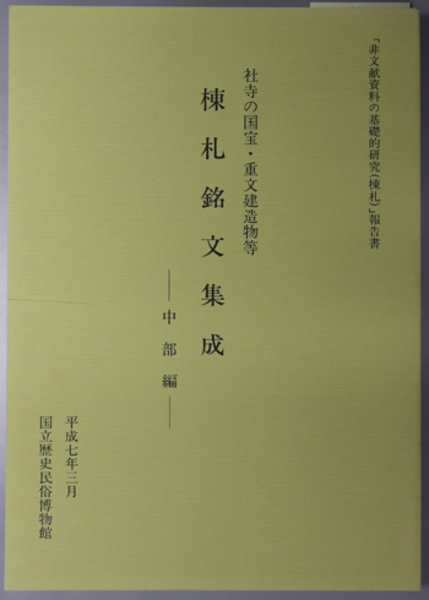 「非文献資料の基礎的研究(棟札)」報告書
社寺の国宝・重文建造物等
棟札銘文集成
―中部編―
平成七年三月
国立歴史民俗博物館